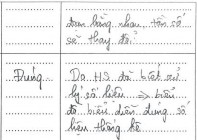 đoạn bằng nhau, tần số
sẽ thay đổi
Đúng
Do HS đã biết xử
lý số liệu → biểu
đồ biểu diễn đúng số
liệu thống kê